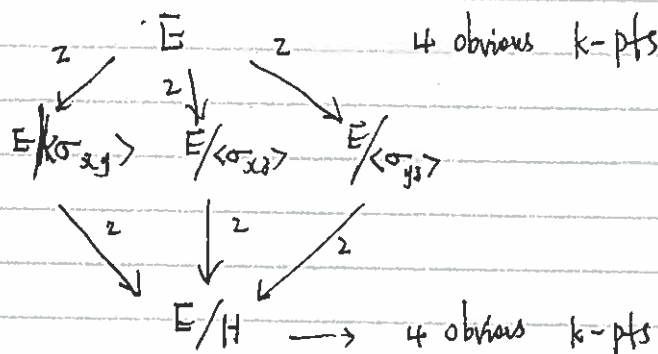 E 4 obvious k-pts
2 2 2
E/<σxy> E/<σxz> E/<σyz>
2 2 2
E/H → 4 obvious k-pts